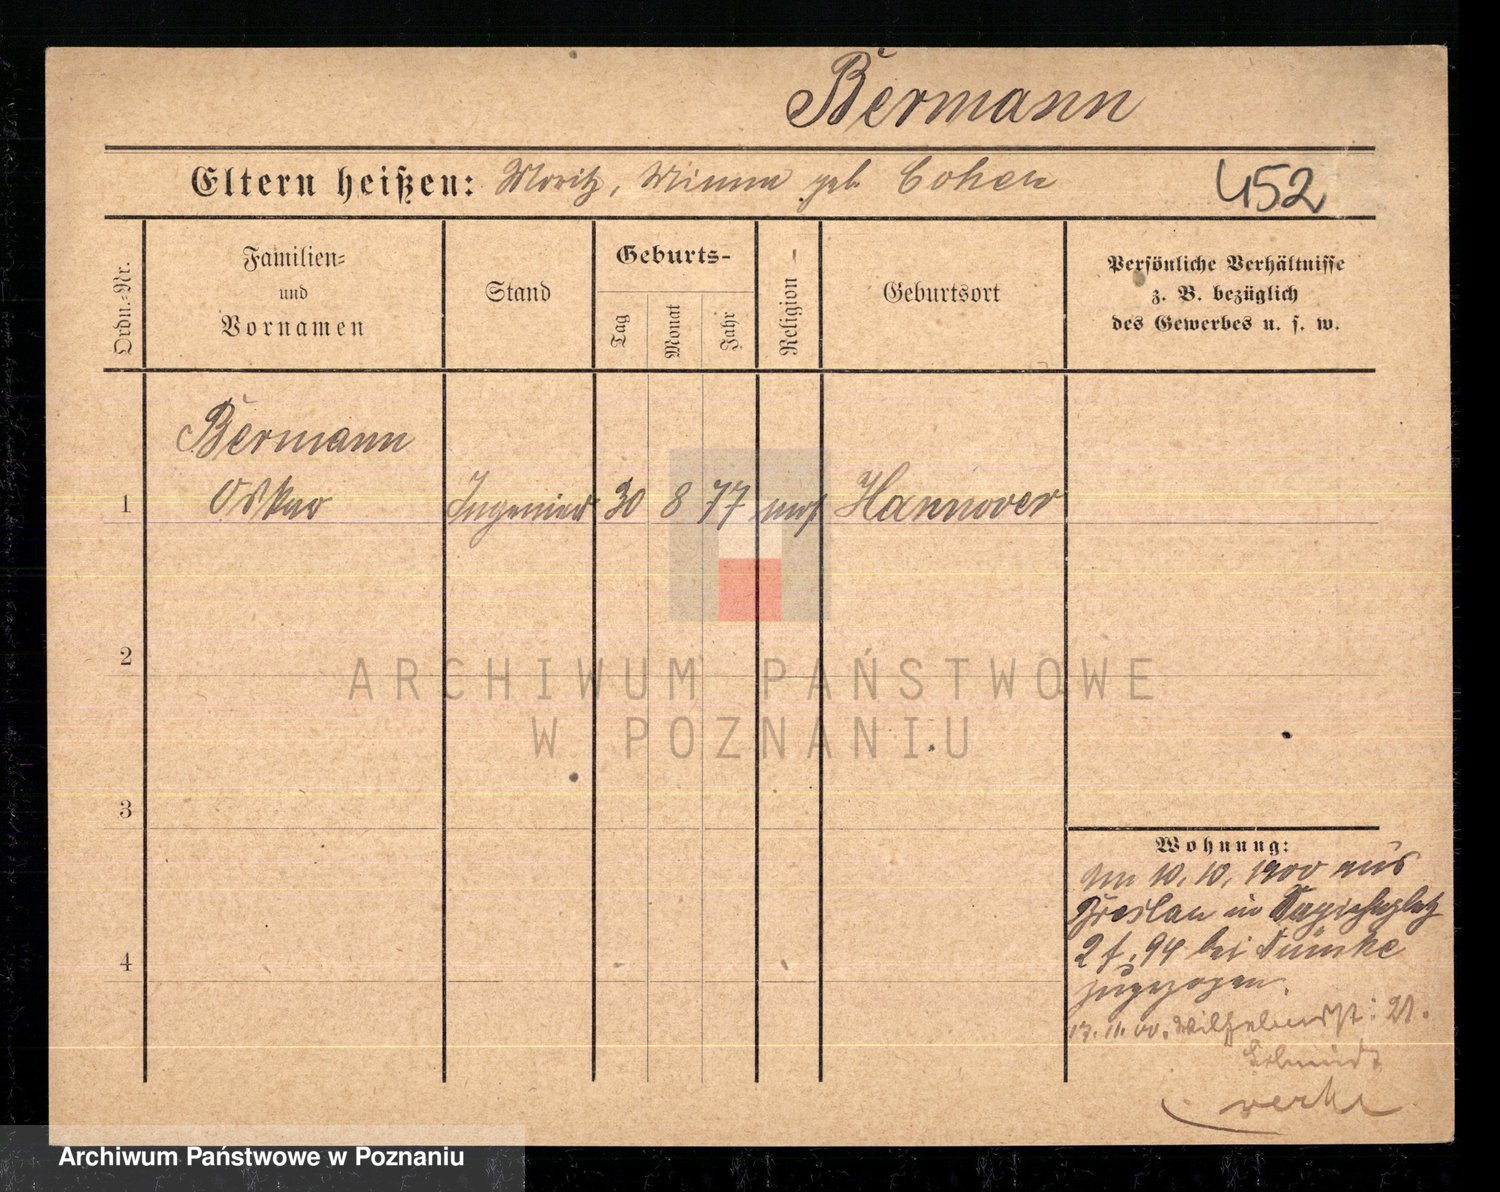 Bermann
Eltern heißen: Moritz, Minna geb. Cohen
452
Ordn.-Nr.
Familien-
und
Vornamen
Stand
Geburts-
Tag
Monat
Jahr
Religion
Geburtsort
Persönliche Verhältnisse
z. B. bezüglich
des Gewerbes u. s. w.
Bermann
1 Oskar Ingenieur 30 8 77 mos Hannover
2
3
4
Wohnung:
Am 10. 10. 1900 aus
Breslau in Sapiehaplatz
bei
zugezogen.
17. 11. 00. Wilhelmst: 21.
Schmidt
ARCHIWUM PAŃSTWOWE
W POZNANIU
Archiwum Państwowe w Poznaniu